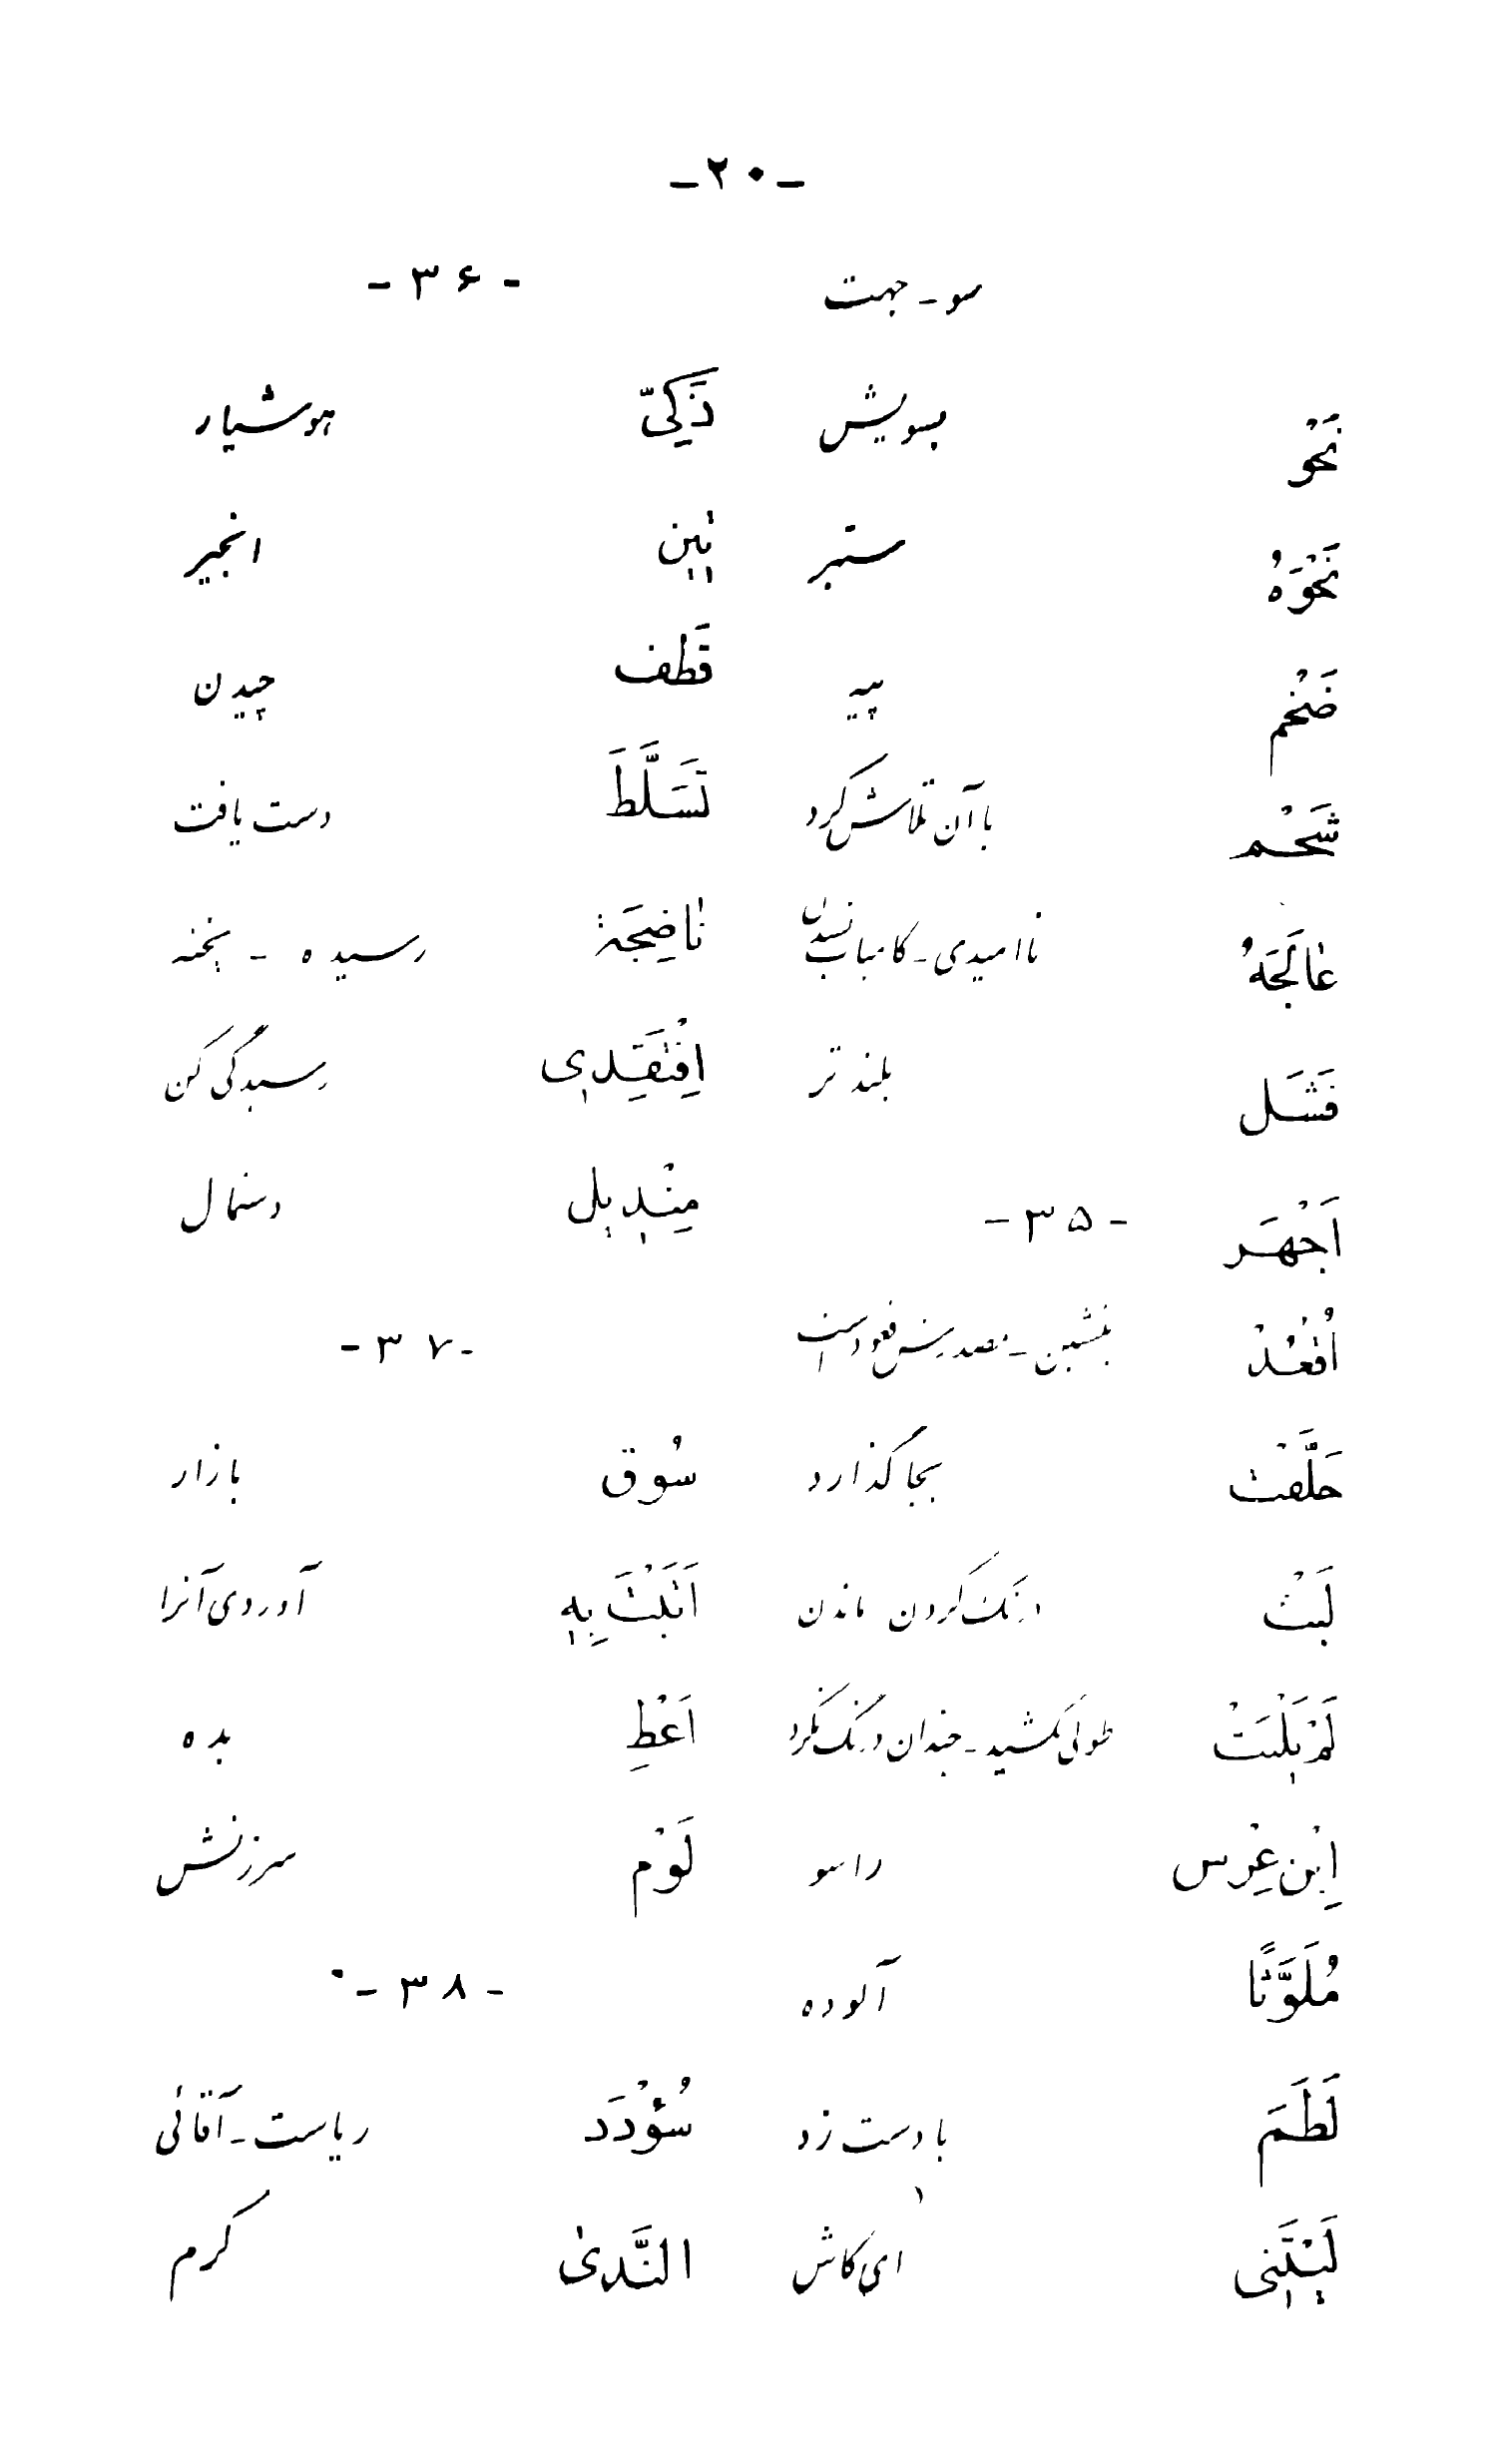 -۲۰-
نَحْو سو - جهت
نَحْوَهُ بسویش
ضَخْم ستبر
شَحْم پیه
عٰالَجَهُ باآن تلاش کرد
فَشَل ناامیدی - کامیاب نشدن
اَجْهَر بلندتر
-۳۵-
اُقْعُدْ بنشین - مصدرش قعود است
خَلَّفَتْ بجا گذارد
لَبْث درنگ کردن ماندن
لَمْ یَلْبَثْ طولی نکشید - چندان درنگ نکرد
اِبْن عِرْس راسو
مُلَوَّثًا آلوده
لَطَمَ با دست زد
لَیْتَنِی ای کاش
-۳۶-
ذَکِیّ هوشیار
تین انجیر
قَطف چیدن
تَسَلَّطَ دست یافت
نٰاضِجَة رسیده - پخته
اِفْتَقِدِی رسیدگی کن
مِنْدیل دستمال
-۳۷-
سُوق بازار
اَتَیْتَ بِهِ آوردی آنرا
اَعْطِ بده
لَوْم سرزنش
-۳۸-
سُؤْدَد ریاست - آقائی
النَّدیٰ کرم